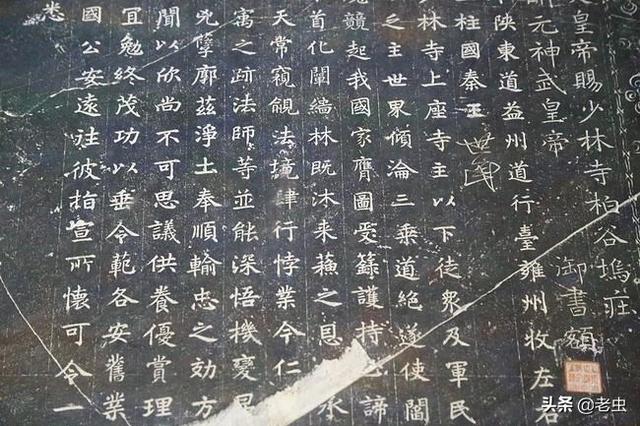 皇帝賜少林寺柏谷塢庄
開元神武皇帝 御書額
陝東道益州道行臺雍州牧左右
柱國秦王世民
林寺上座寺主以下徒衆及軍民
之主世界傾淪三乘道絶遂使閻
競起我國家膺圖受籙護持諦
首化闡緇林既沐来蘓之恩
天常窺覦法境肆行悖業今仁
寓之跡法師等並能深悟機變早
兇孽廓茲淨土奉順輸忠之効方
聞以欣尚不可思議供養優賞理
宜勉終茂功以垂令範各安舊業
國公安遠往彼指宣所懷可令一
悉
头条 @老虫